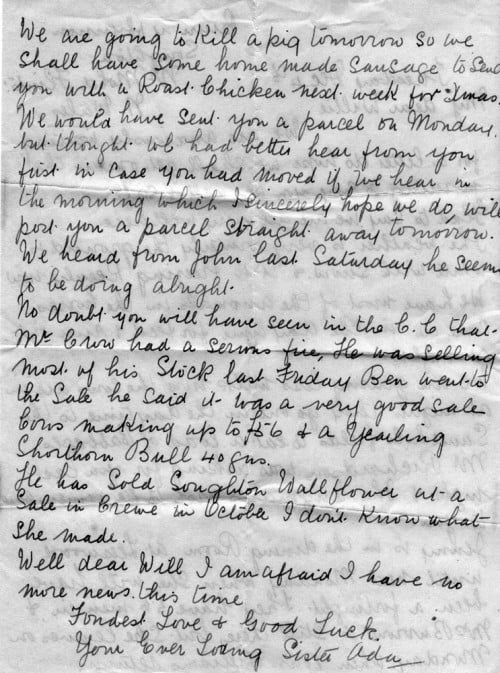 We are going to Kill a pig tomorrow so we
shall have some home made sausage to send
you with a Roast Chicken next week for Xmas.
We would have sent you a parcel on Monday.
but thought we had better hear from you
first in case you had moved if we hear in
the morning which I sincerely hope we do, will
post you a parcel straight away tomorrow.
We heard from John last Saturday he seems
to be doing alright.
No doubt you will have seen in the C.C that
Mr Crow had a serious fire, He was selling
most of his Stock last Friday Ben went to
the Sale he said it was a very good sale
Cows making up to £56 & a Yearling
Shorthorn Bull 40 gns.
He has Sold Soughton Wallflower at a
Sale in Crewe in October I don't Know what
She made.
Well dear Will I am afraid I have no
more news this time
Fondest Love & Good Luck
Your Ever Loving Sister Ada